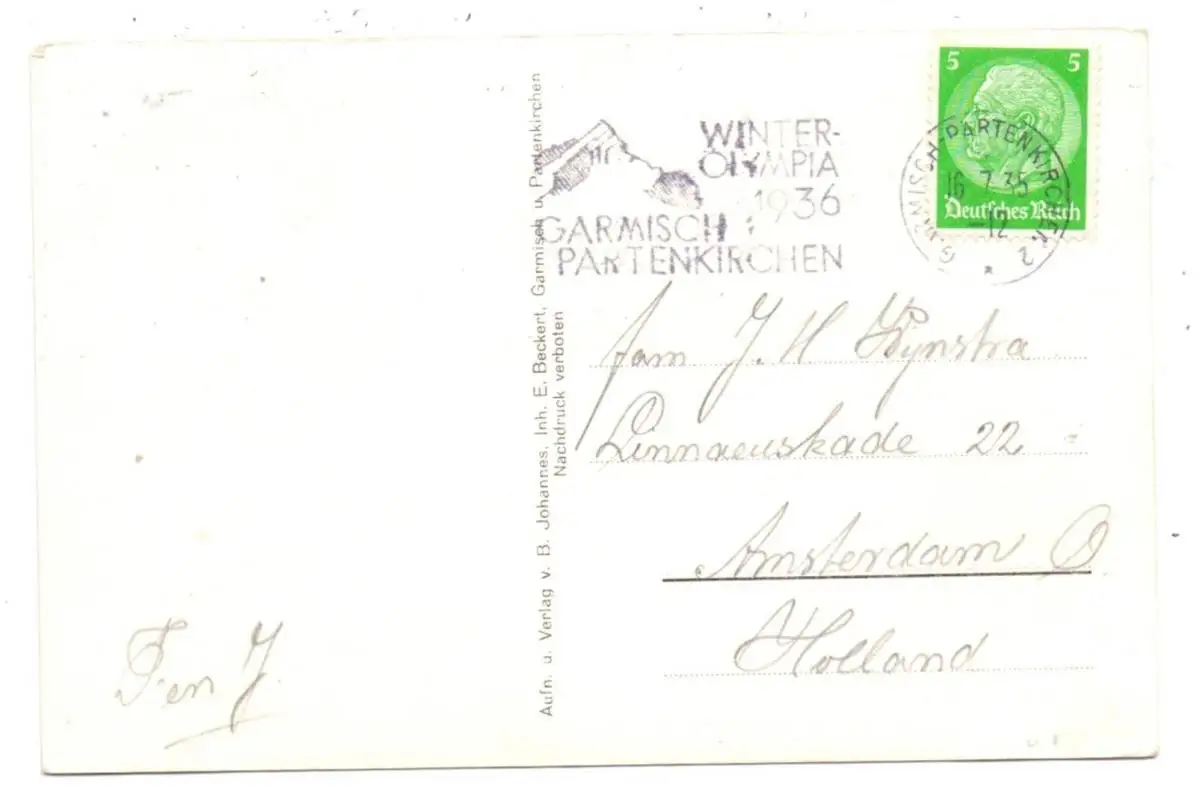 5 5
Deutsches Reich
GARMISCH-PARTENKIRCHEN 2
16.7.35
-12
*
WINTER-
OLYMPIA
1936
GARMISCH
PARTENKIRCHEN
fam J. H Wynstra
Linnaeuskade 22
Amsterdam O
Holland
Aufn. u. Verlag v. B. Johannes. Inh. E. Beckert, Garmisch u. Partenkirchen
Nachdruck verboten
F. en J.